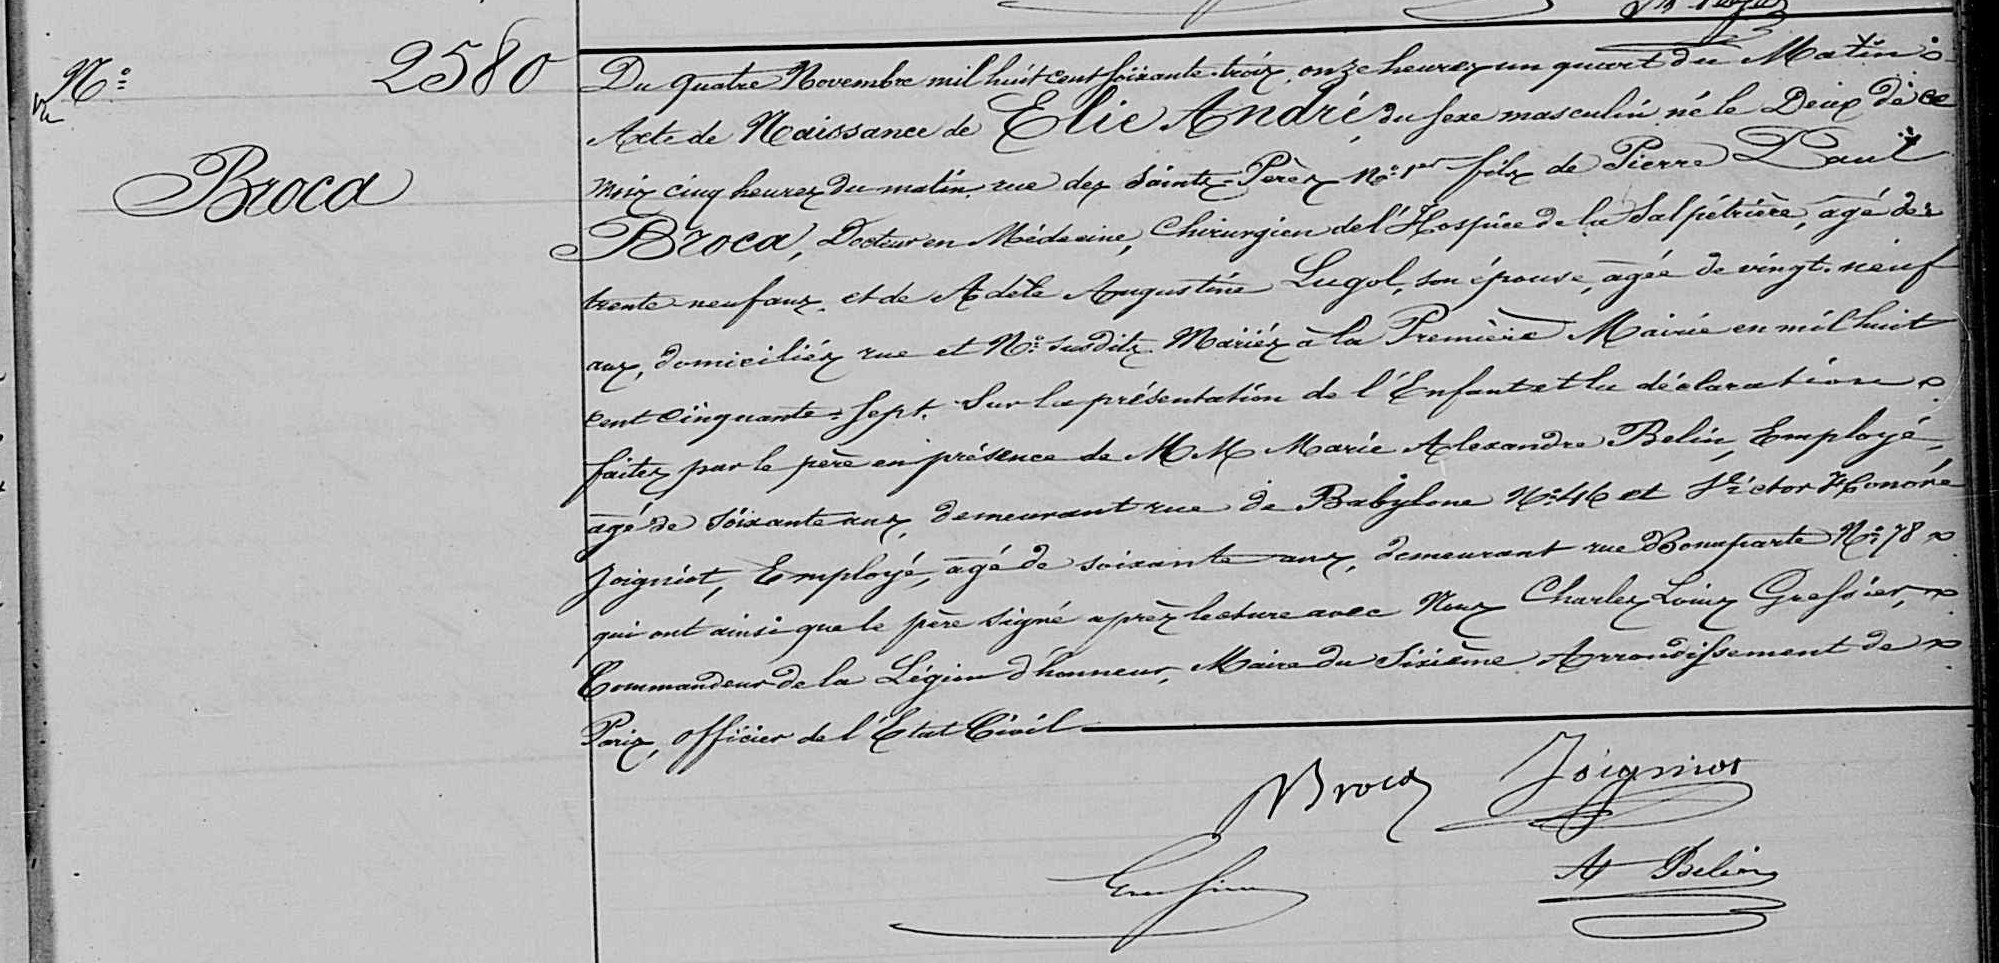 N.o 2580
Vu
Broca
Du quatre Novembre mil huit cent soixante-trois, onze heures un quart du Matin
Acte de Naissance de Elie André, du sexe masculin né le Deux de ce
mois cinq heures du matin, rue des Saints-Pères N.o 1er fils de Pierre Paul
Broca, Docteur en Médecine, Chirurgien de l'Hospice de la Salpétrière, âgé de
trente neuf ans, et de Adèle Augustine Lugol, son épouse, âgée de vingt-neuf
ans, domiciliés rue et N.o susdits. Mariés à la Première Mairie en mil huit
cent cinquante-sept. Sur la présentation de l'Enfant et la déclaration
faites par le père en présence de M M Marie Alexandre Belin, Employé,
âgé de soixante ans, demeurant rue de Babylone N.o 46 et Victor Honoré
Joigniot, Employé, âgé de soixante ans, demeurant rue Bonaparte N.o 78
qui ont ainsi que le père signé après lecture avec Nous Charles Louis Gressier,
Commandeur de la Légion d'honneur, Maire du Sixième Arrondissement de
Paris, officier de l'Etat Civil
Broca Joigniot
Gressier A Belin